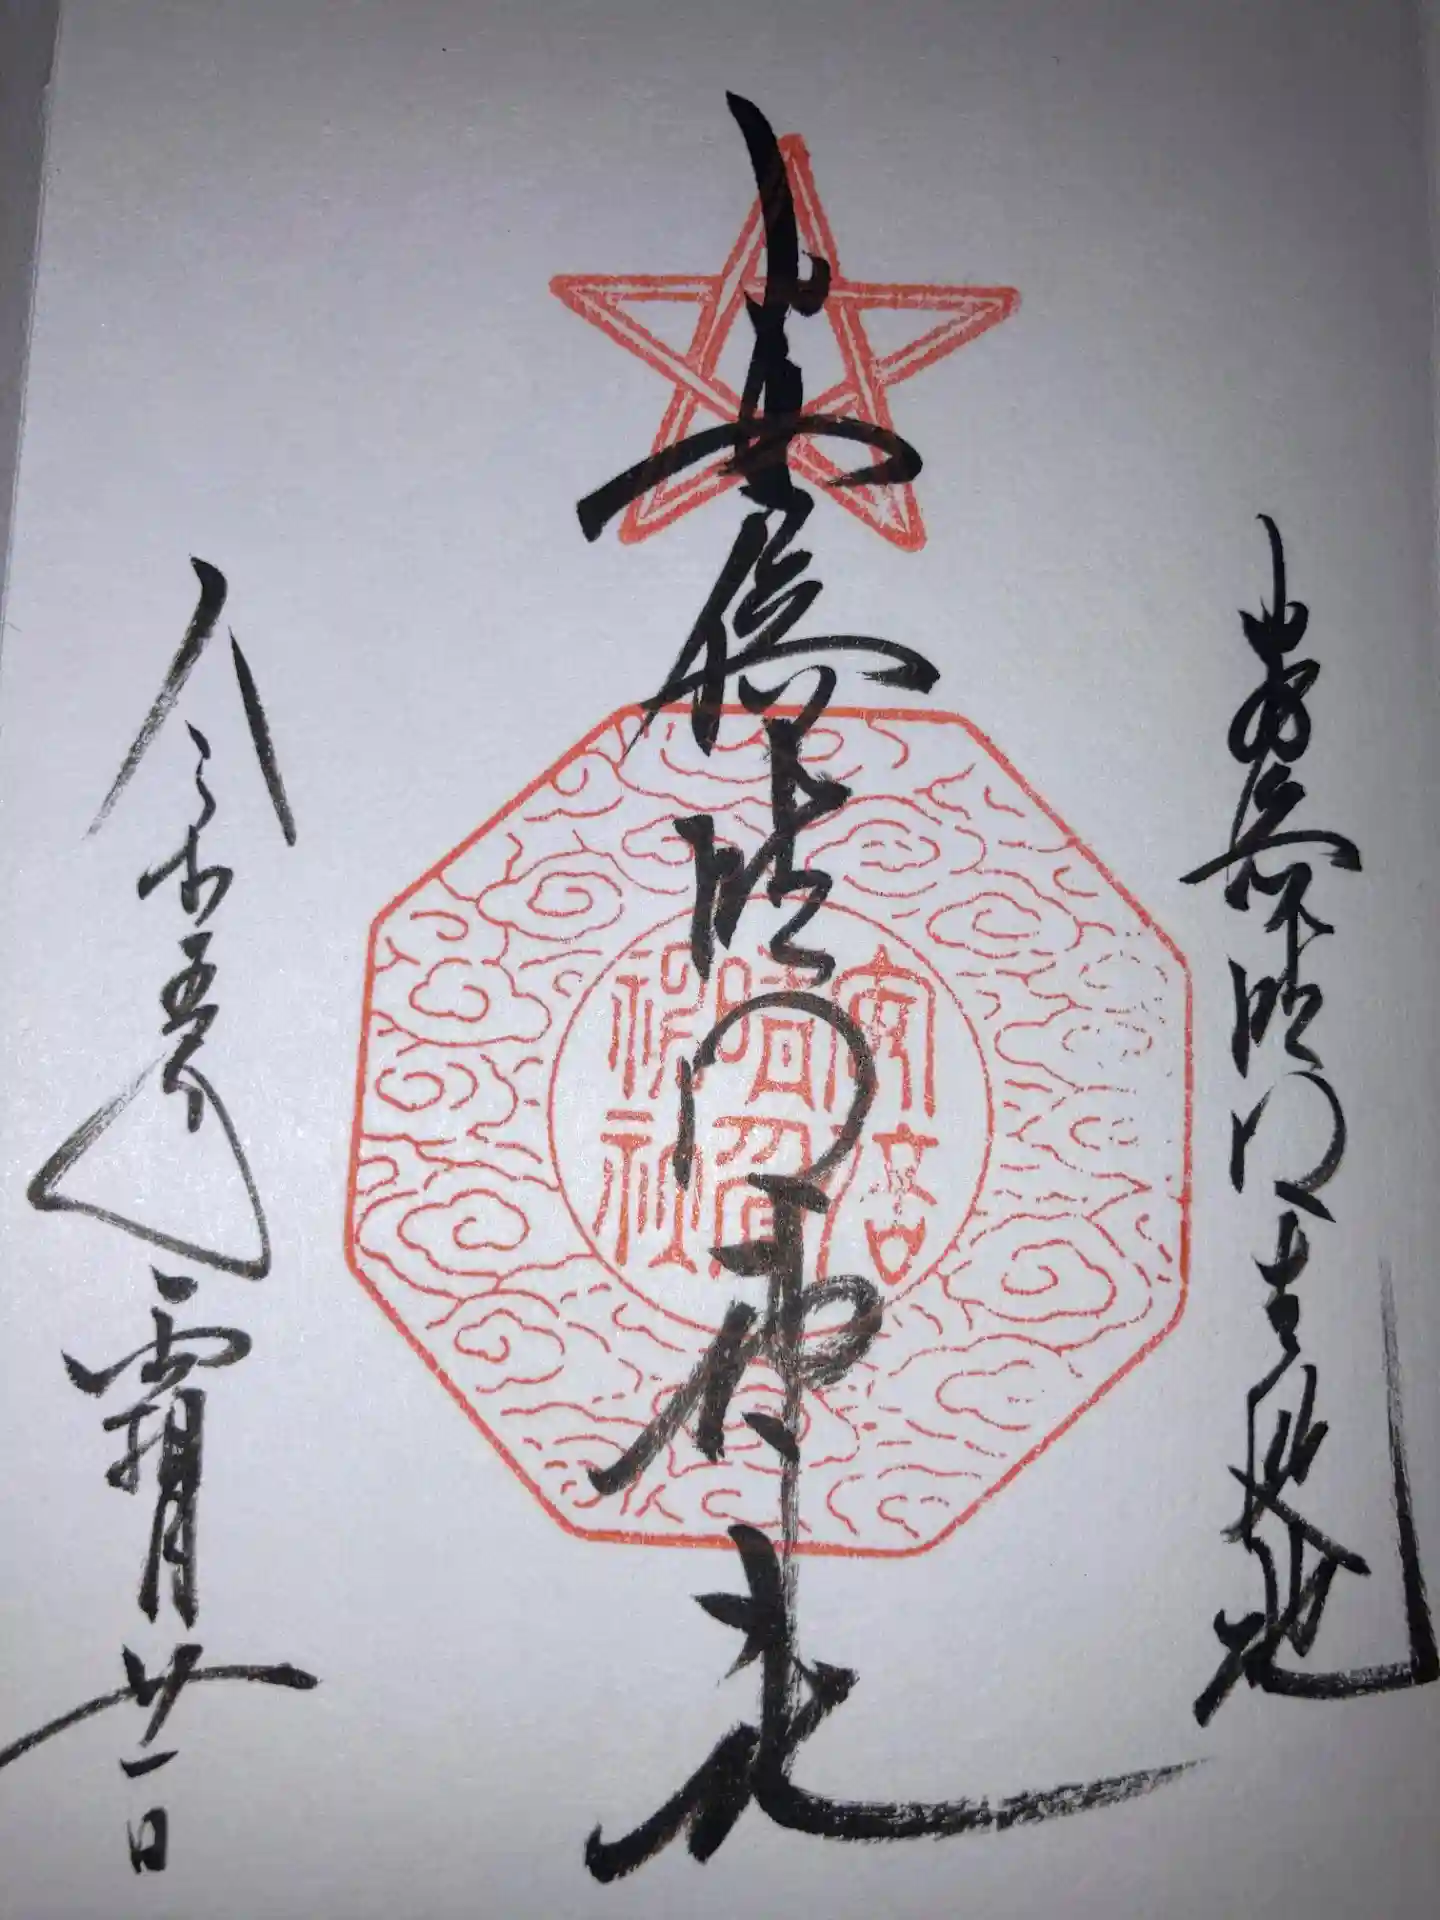 安倍晴明生誕地
安倍晴明神社
安倍晴明神社
令和五年霜月廿一日